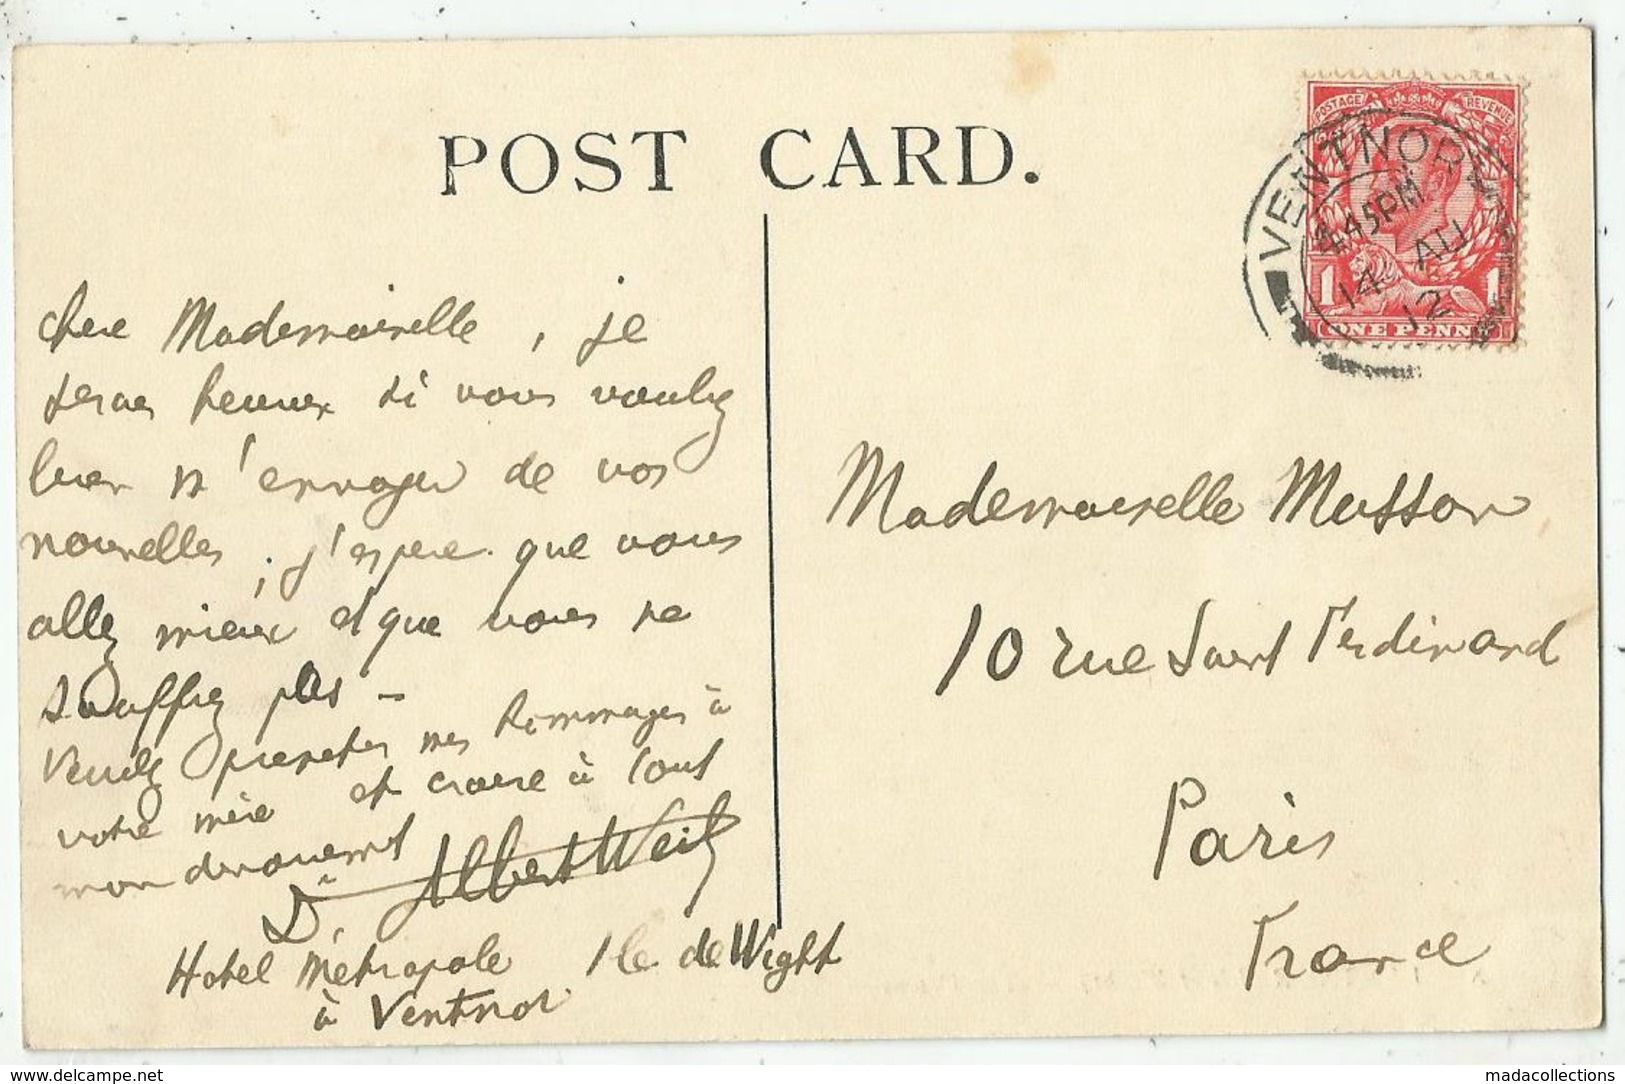 POST CARD.
POSTAGE REVENUE
VENTNOR
4 45PM
14 AU
12
1 1
ONE PENNY
chere Mademoiselle, je
serais heureux si vous voulez
bien m'envoyer de vos
nouvelles; j'espere que vous
allez mieux et que vous ne
souffrez pas -
Veuillez presenter mes hommages à
votre mère et croire à tout
mon dévouement
Dr Albert Weil
Hotel Métropole Ile de Wight
à Ventnor
Mademoiselle Musson
10 rue Saint Ferdinand
Paris
France
www.delcampe.net
madacollections